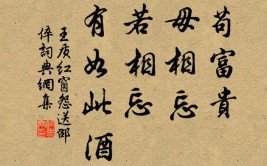 苟富貴
毋相忘
若相忘
有如此酒
王庚红窗怨送邵
倅詞典網集